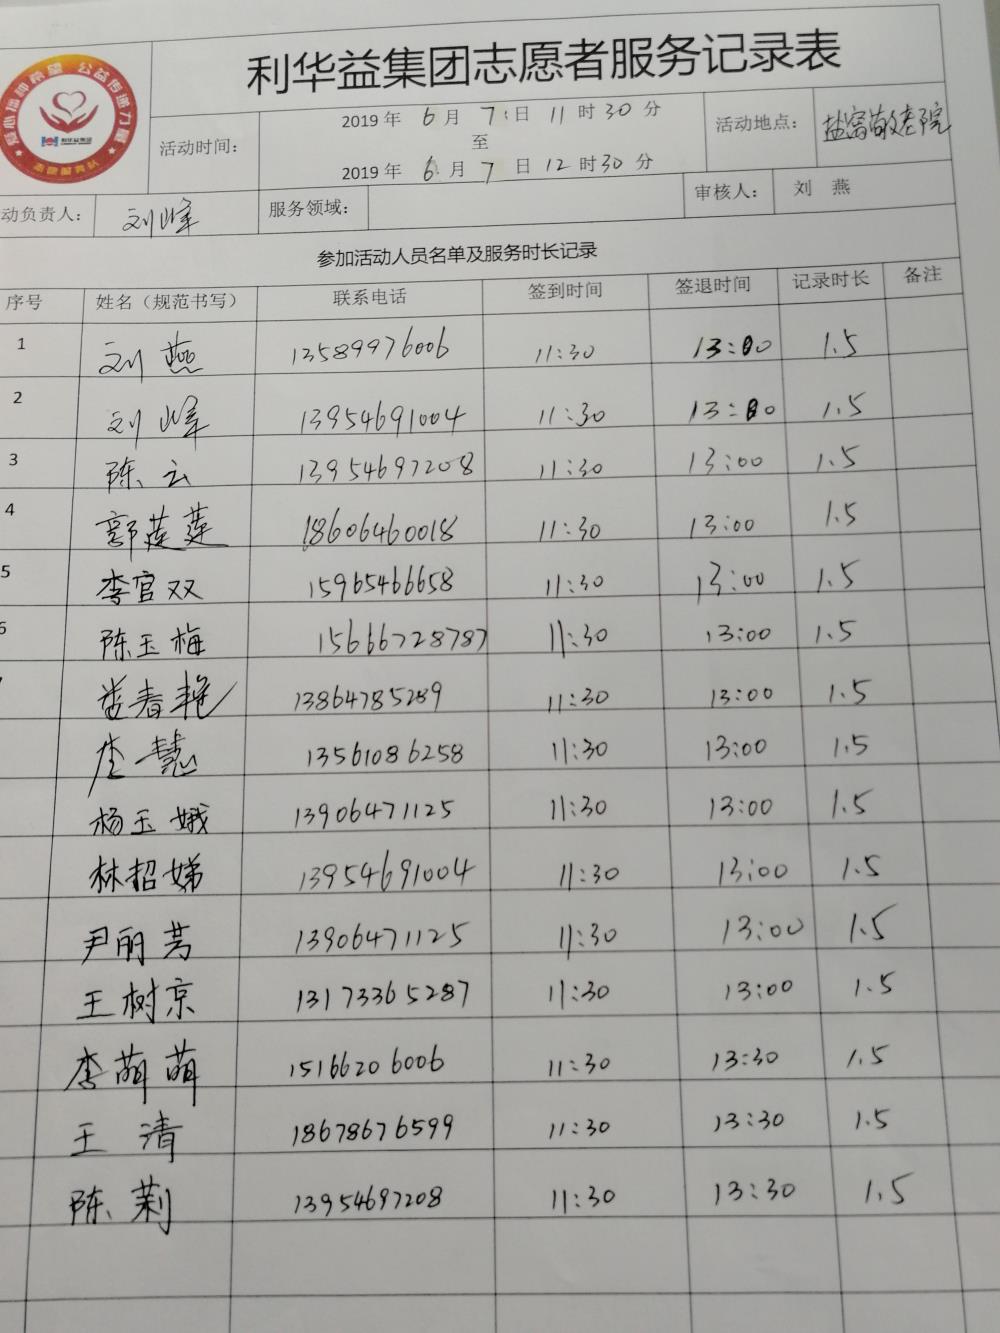 爱心播种希望 公益传递力量
利华益集团
志愿服务队
利华益集团志愿者服务记录表
活动时间： 2019年 6月 7日 11时30分
至
2019年 6月 7日 12时30分
活动地点： 盐窝敬老院
动负责人： 刘峰 服务领域： 审核人： 刘 燕
参加活动人员名单及服务时长记录
序号 姓名（规范书写） 联系电话 签到时间 签退时间 记录时长 备注
1 刘燕 13589976006 11:30 13:00 1.5
2 刘峰 13954691004 11:30 13:00 1.5
3 陈云 13954697208 11:30 13:00 1.5
4 郭莲莲 18606460018 11:30 13:00 1.5
5 李官双 15965466658 11:30 13:00 1.5
6 陈玉梅 15666728787 11:30 13:00 1.5
春艳 13864785289 11:30 13:00 1.5
李慧 13561086258 11:30 13:00 1.5
杨玉娥 13906471125 11:30 13:00 1.5
林招娣 13954691004 11:30 13:00 1.5
尹丽芳 13906471125 11:30 13:00 1.5
王树京 13173365287 11:30 13:00 1.5
李萌萌 15166206006 11:30 13:30 1.5
王清 18678676599 11:30 13:30 1.5
陈莉 13954697208 11:30 13:30 1.5